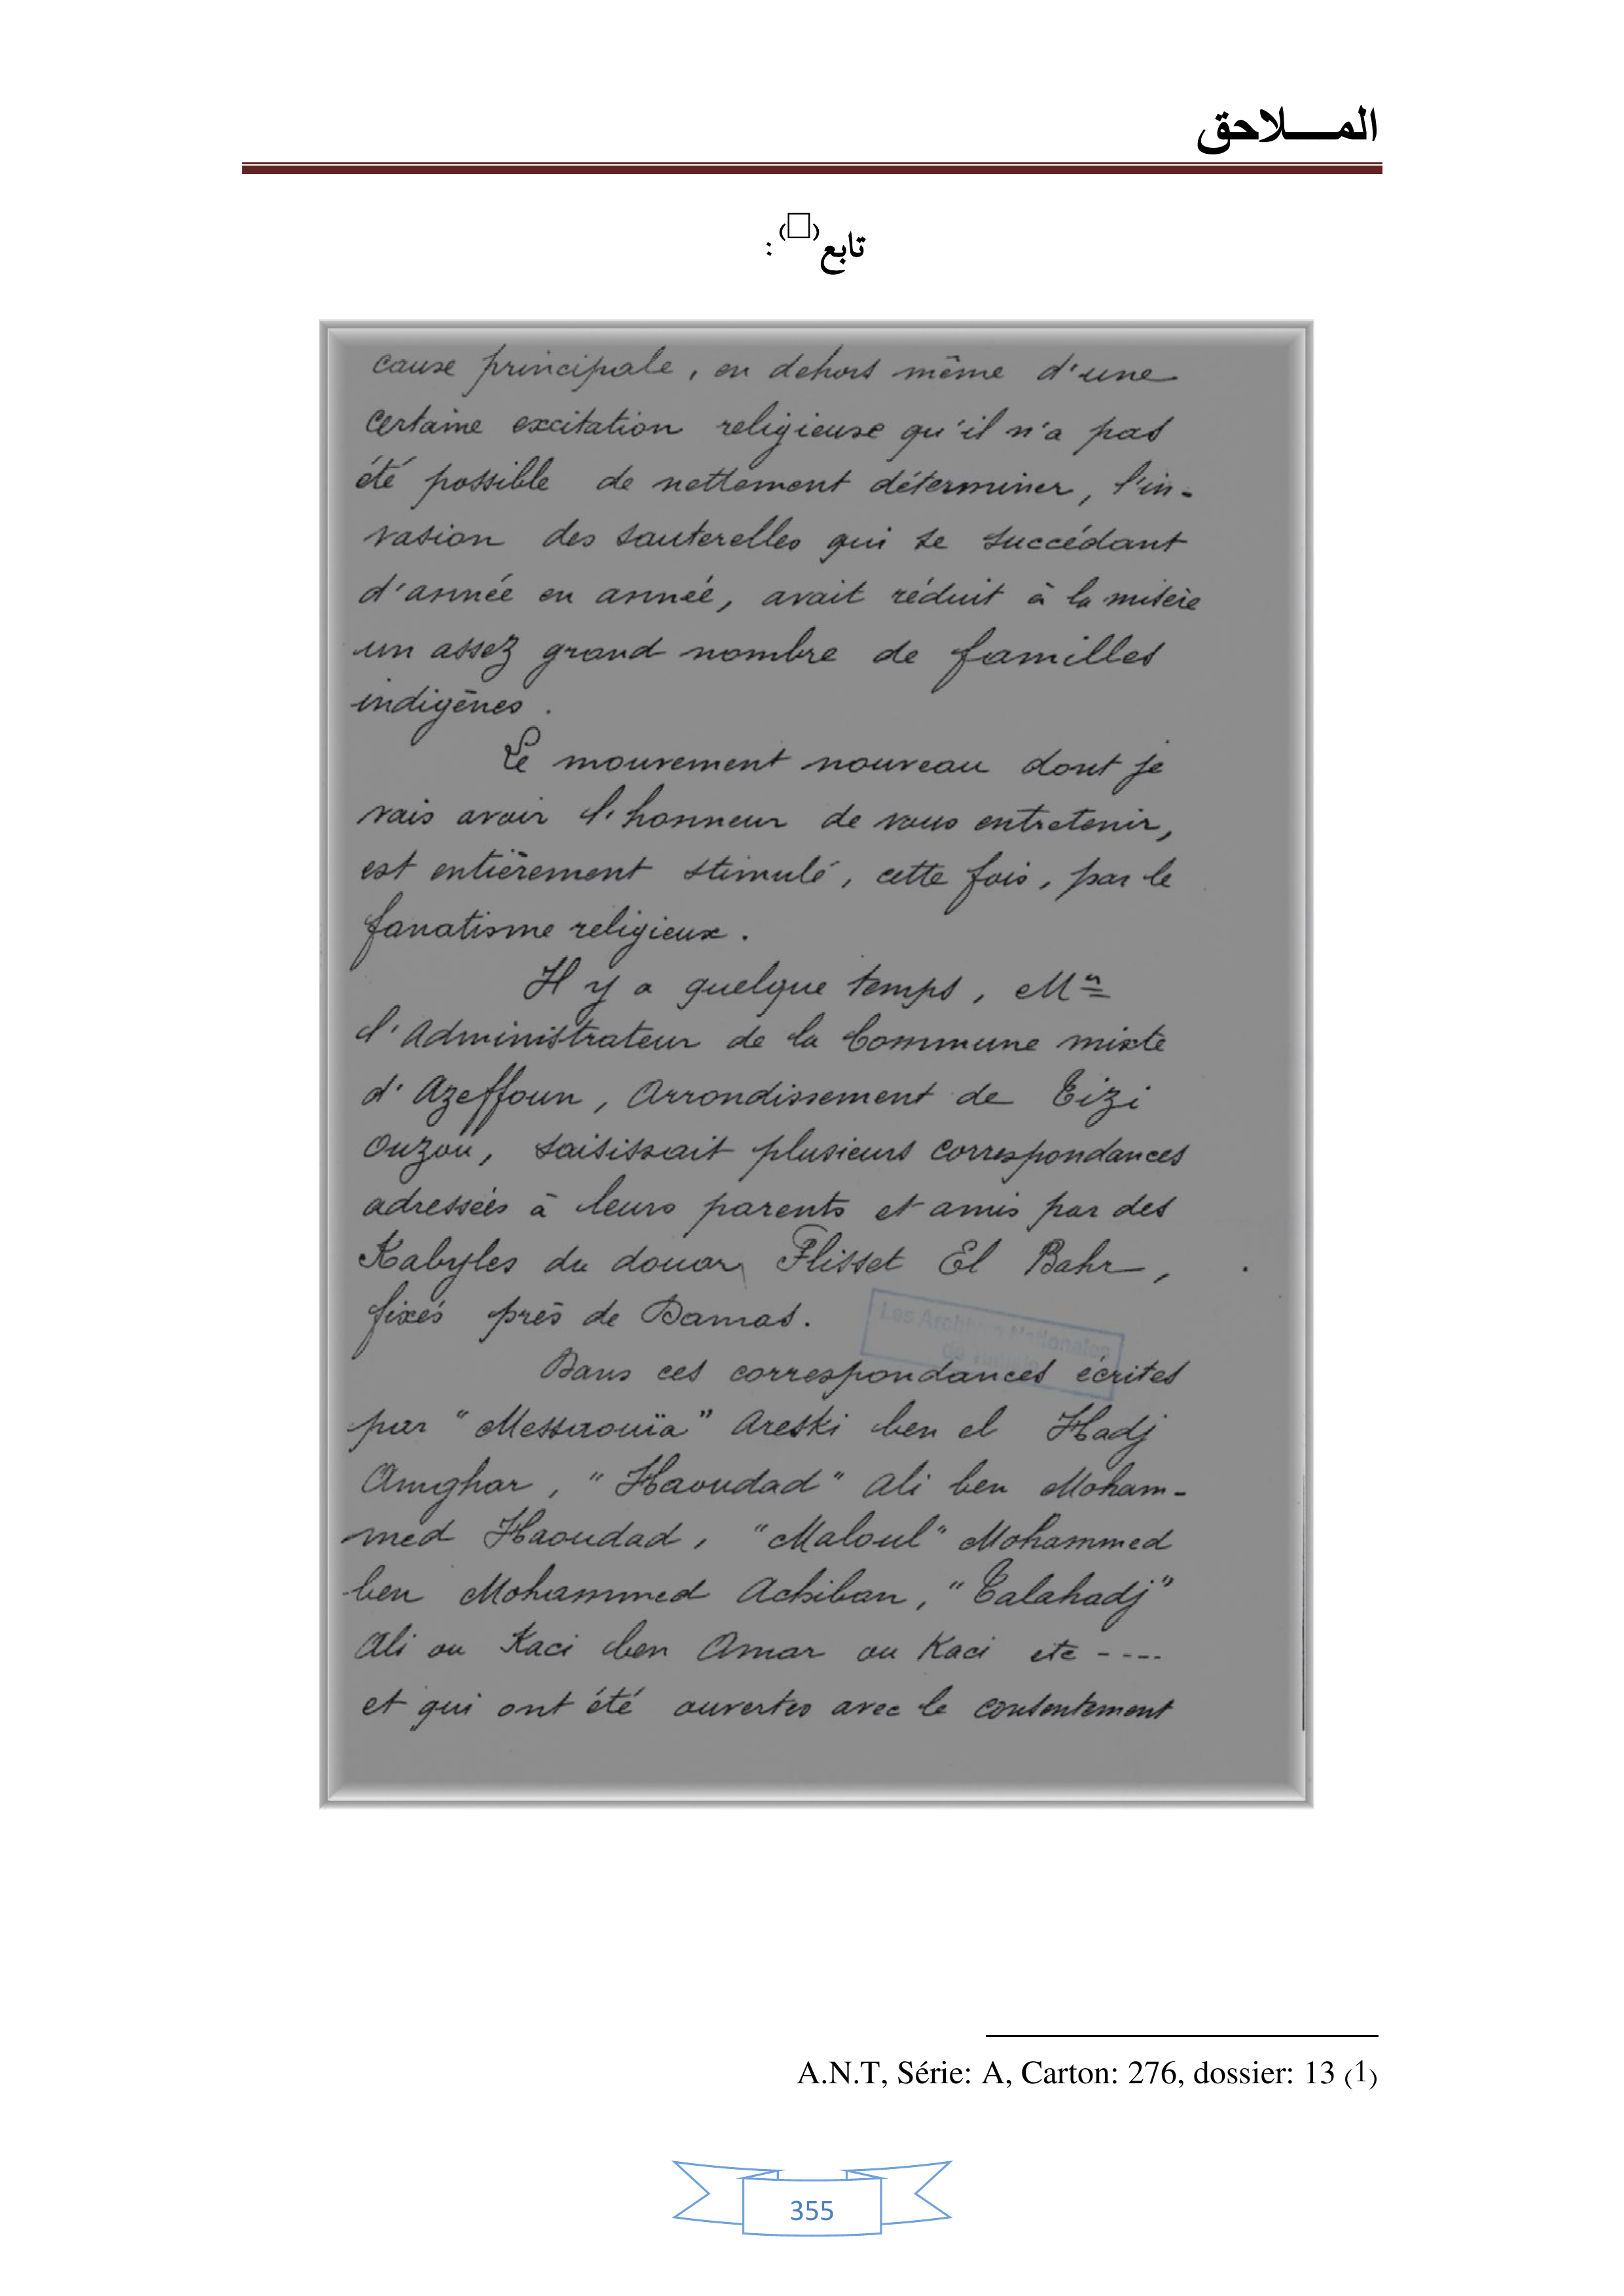 المـــــلاحق
تابع(□) :
cause principale, en dehors même d'une
certaine excitation religieuse qu'il n'a pas
été possible de nettement déterminer, l'in-
vasion des sauterelles qui se succédant
d'année en année, avait réduit à la misère
un assez grand nombre de familles
indigènes.
Le mouvement nouveau dont je
vais avoir l'honneur de vous entretenir,
est entièrement stimulé, cette fois, par le
fanatisme religieux.
Il y a quelque temps, Mr
l'Administrateur de la Commune mixte
d'Azeffoun, Arrondissement de Tizi
Ouzou, saisissait plusieurs correspondances
adressées à leurs parents et amis par des
Kabyles du douar Flisset El Bahr,
fixés près de Damas.
Les Archives Nationales
de Tunisie
Dans ces correspondances écrites
par "Messaouïa" Areski ben el Hadj
Amghar, "Haoudad" Ali ben Moham-
med Haoudad, "Maloul" Mohammed
ben Mohammed Ackiban, "Talahadj"
Ali ou Kaci ben Amar ou Kaci etc ----
et qui ont été ouvertes avec le consentement
A.N.T, Série: A, Carton: 276, dossier: 13 (1)
355